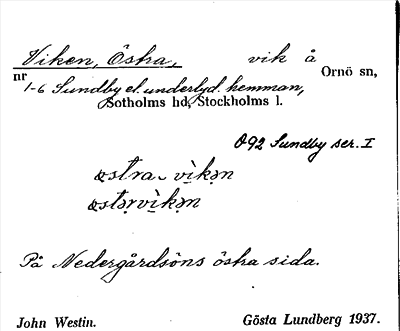 Viken, Östra, vik å Ornö sn,
nr 1-6 Sundby el. underlyd. hemman,
Sotholms hd, Stockholms l.
092 Sundby ser. I
östra- vìkən
östərvìkən
På Nedergårdsöns östra sida.
John Westin. Gösta Lundberg 1937.